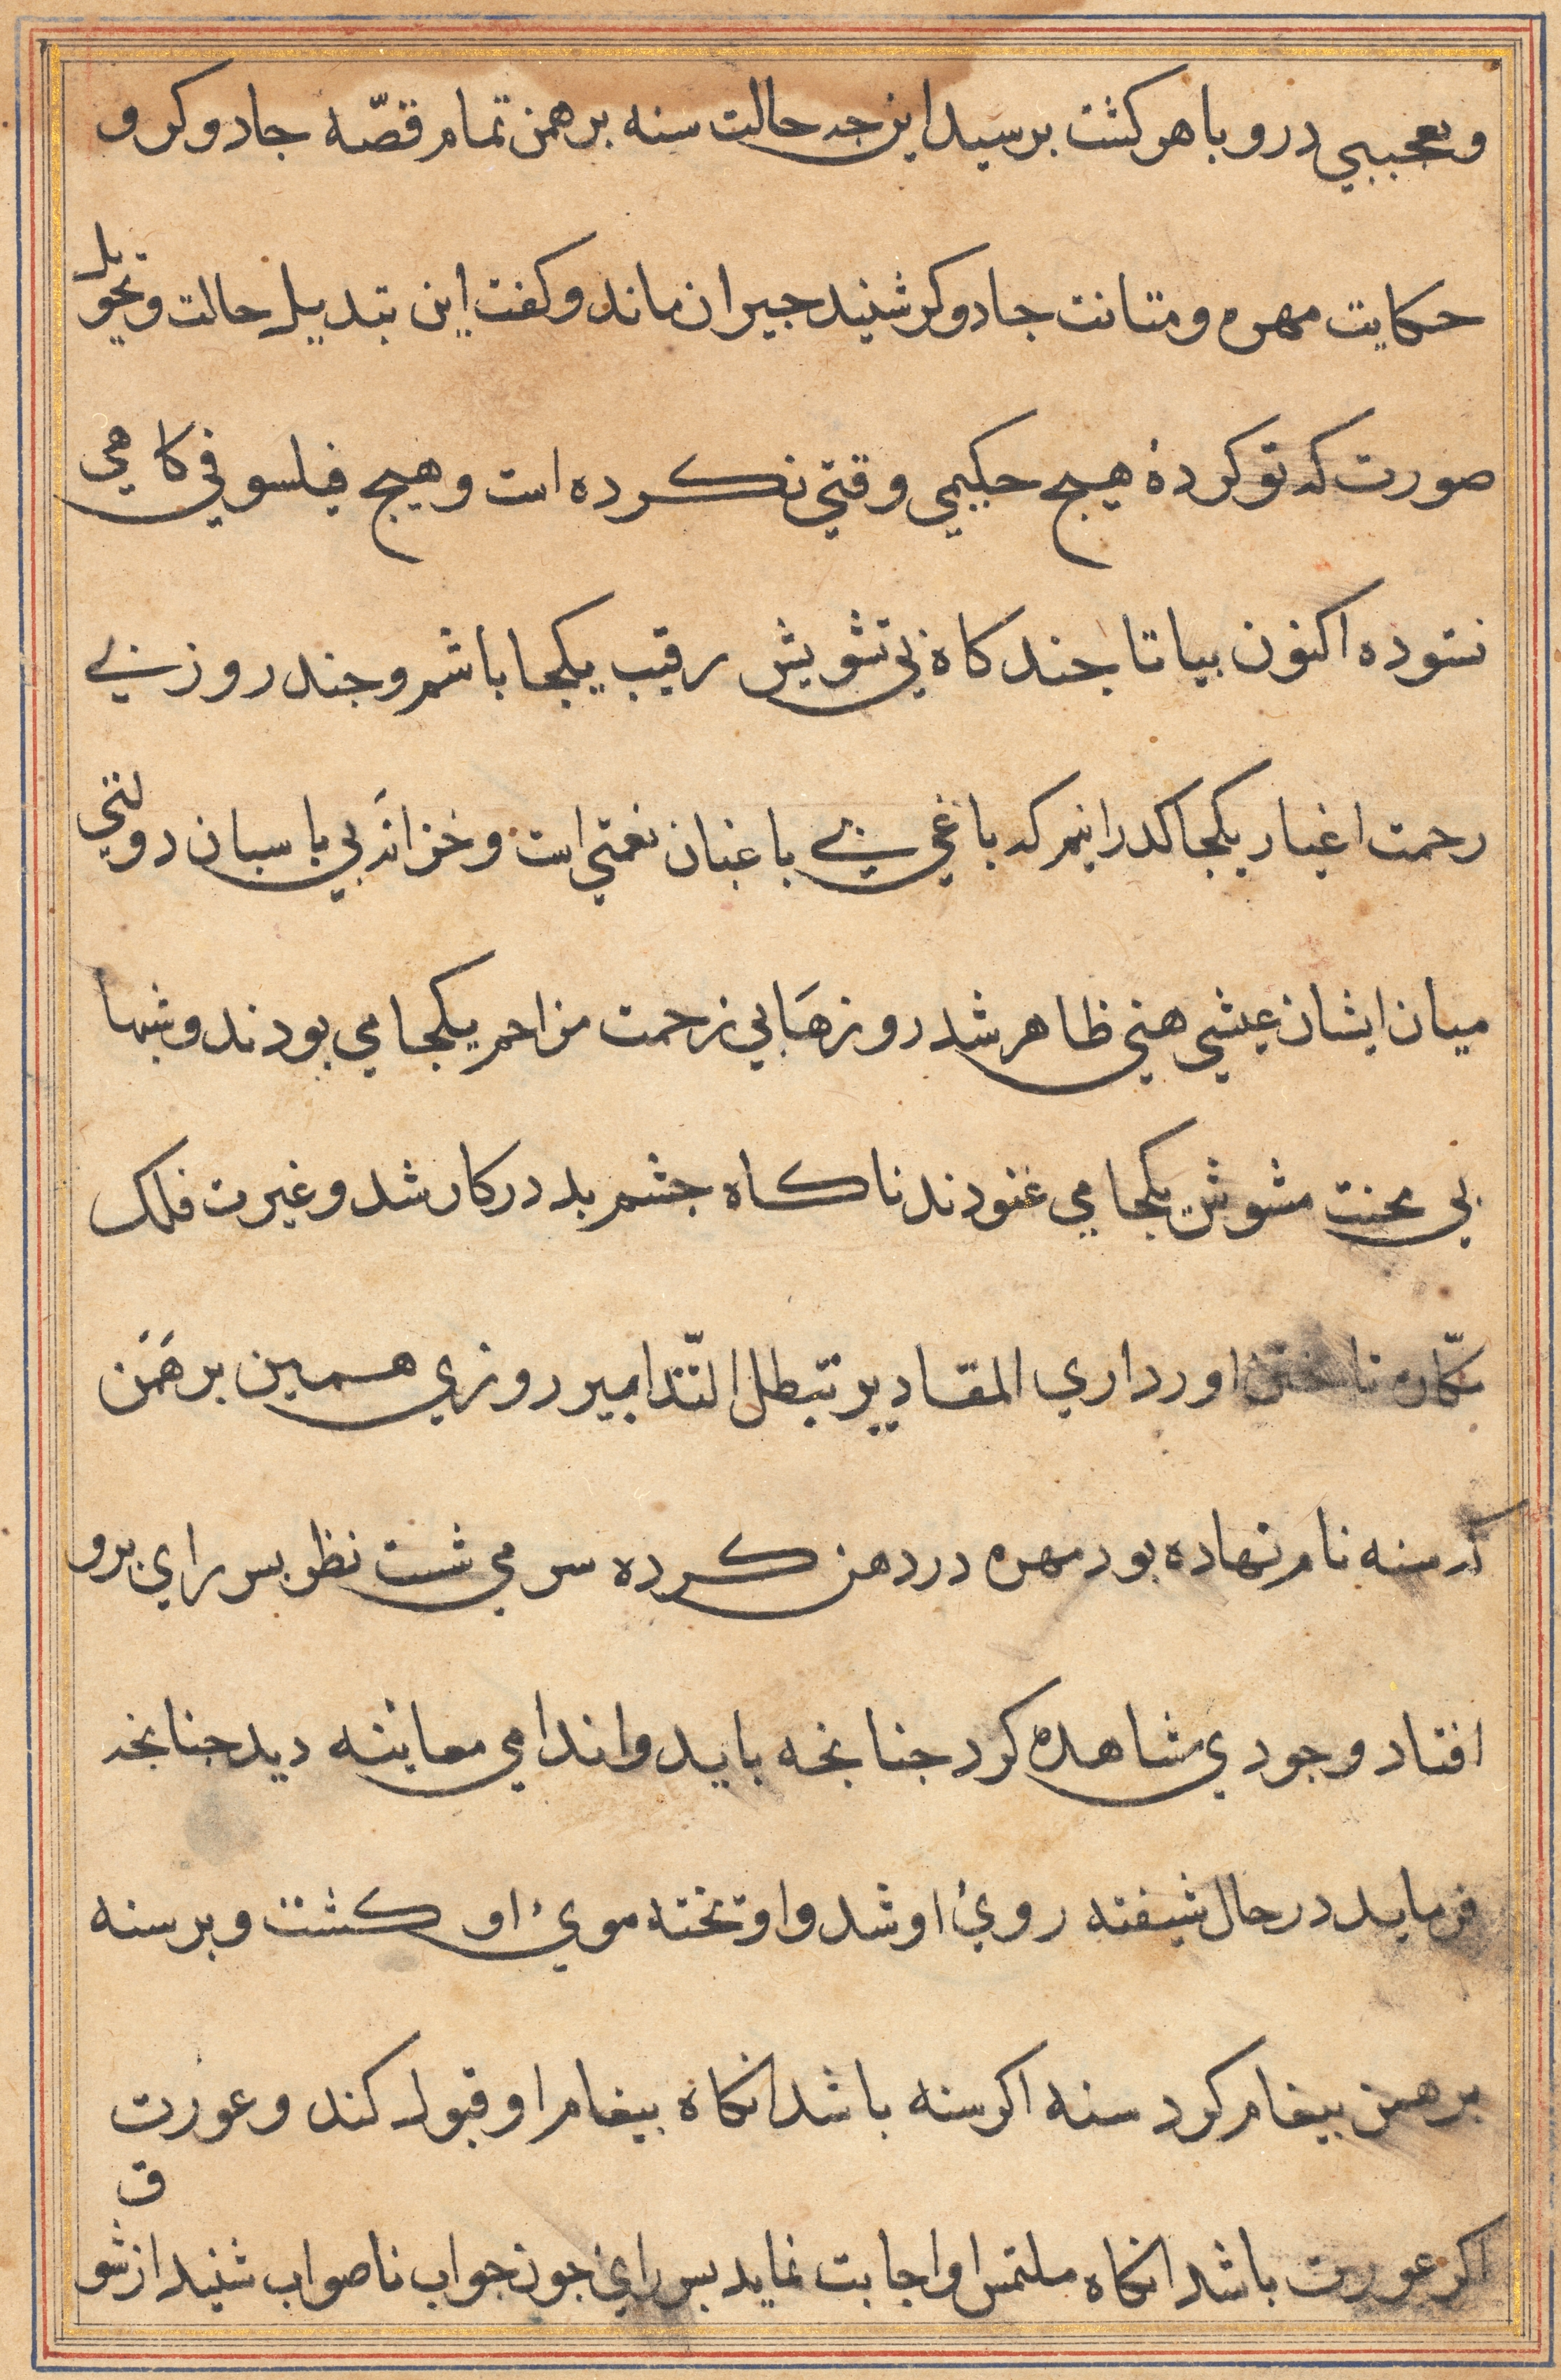 وتعجبي درو باهر كشت برسيد اين جه حالت سنه برهمن تمام قصّه جادوكر و
حكايت مهره و متانت جادوكر شنيد حيران ماند و كفت اين تبديل حالت و تحويل
صورت كه تو كردهٔ هيج حكيمي وقتي نكرده است و هيج فيلسوفي كاهي
ننموده اكنون بيا تا جند كاه بي تشويش رقيب يكجا باشم و جند روز بي
زحمت اغيار يكجا كذرانيم كه باغي بي باغبان نعمتي است و خزانه بي باسبان دولتي
ميان ايشان عيشي هني ظاهر شد روزها بي زحمت مزاحم يكجا مي بودند و شبها
بي محنت مشوش يكجا مي غنودند ناكاه جشم بد در كار شد و غيرت فلك
تاختن اورد اري المقادير تبطل التّدابير روزي همين برهمن
كه سنه نام نهاده بود مهره در دهن كرده سر مي شست نظر بسر راي برو
افتاد وجودي مشاهده كرد جنانجه بايد و اندامي معاينه ديد جنانجه
فرمايد در حال شيفته روئ او شد و اوتخته موئ او كشت و بر سنه
برهمن بيغام كرد سنه اكر سنه باشد انكاه بيغام او قبول كند و عورت
اكر عورت باشد انكاه ملتمس او اجابت نمايد بسر راي جون جواب ناصواب شنيد از شوق